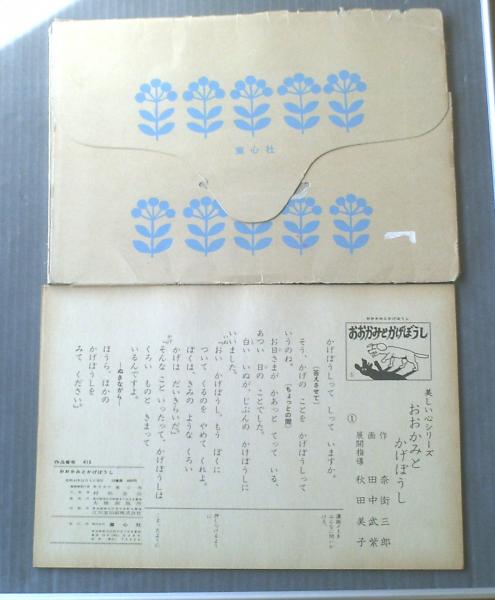 童心社
おおかみとかげぼうし
おおかみとかげぼうし
美しい心シリーズ
おおかみと
かげぼうし
①
作 奈街三郎
画 田中武紫
展開指導 秋田美子
かげぼうしって しって いますか。
〔答えさせて〕
そう、かげの ことを かげぼうしって
いうのね。
〔ちょっとの間〕
お日さまが かあっと てって いる、
あつい 日の ことでした。
白い いぬが、じぶんの かげぼうしに
いいました。
「おい かげぼうし。もう ぼくに
ついて くるのを やめて くれよ。
ぼくは、きみの ような くろい
かげは だいきらいだ」
「そんな こと いったって、かげぼうしは
くろい ものと きまって
いるんですよ。
―ぬきながら―
ほうら、ほかの
かげぼうしを
みて ください」
作品番号
おおかみとかげぼうし
童心社